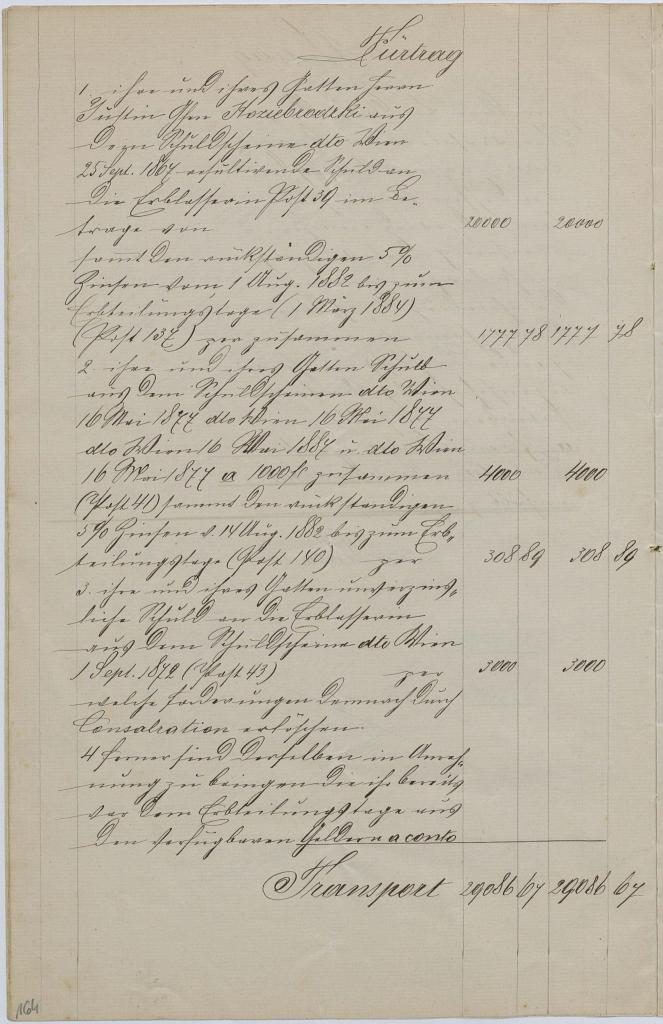 Fürtrag
1. ihre und ihres Gatten Herrn
Justin Gfen Koziebrodzki aus
dem Schuldscheine dto Wien
25 Sept. 1867 resultirende Schuld an
die Erblasserin Post 39 im Be-
trage von 20000 20000
sammt den rückständigen 5%
Zinsen vom 1 Aug. 1882 bis zum
Erbteilungstage (1 März 1884)
(Post 137) per zusammen 1777 78 1777 78
2. ihre und ihres Gatten Schuld
aus dem Schuldscheinen dto Wien
16 Mai 1877 dto Wien 16 Mai 1877
dto Wien 16 Mai 1887 u. dto Wien
16 Mai 1877 a 1000 fl zusammen 4000 4000
(Post 41) sammt den rückständigen
5% Zinsen v. 14 Aug. 1882 bis zum Erb-
teilungstage (Post 140) per 308 89 308 89
3. ihre und ihres Gatten unverzins-
liche Schuld an die Erblasserin
aus dem Schuldscheine dto Wien
1 Sept. 1872 (Post 43) per 3000 3000
welche Forderungen demnach durch
erlöschen.
4 ferner sind derselben in Anrech-
nung zu bringen die ihr bereits
vor dem Erbteilungstage aus
den verfügbaren Geldern a conto
Transport 29086 67 29086 67
164